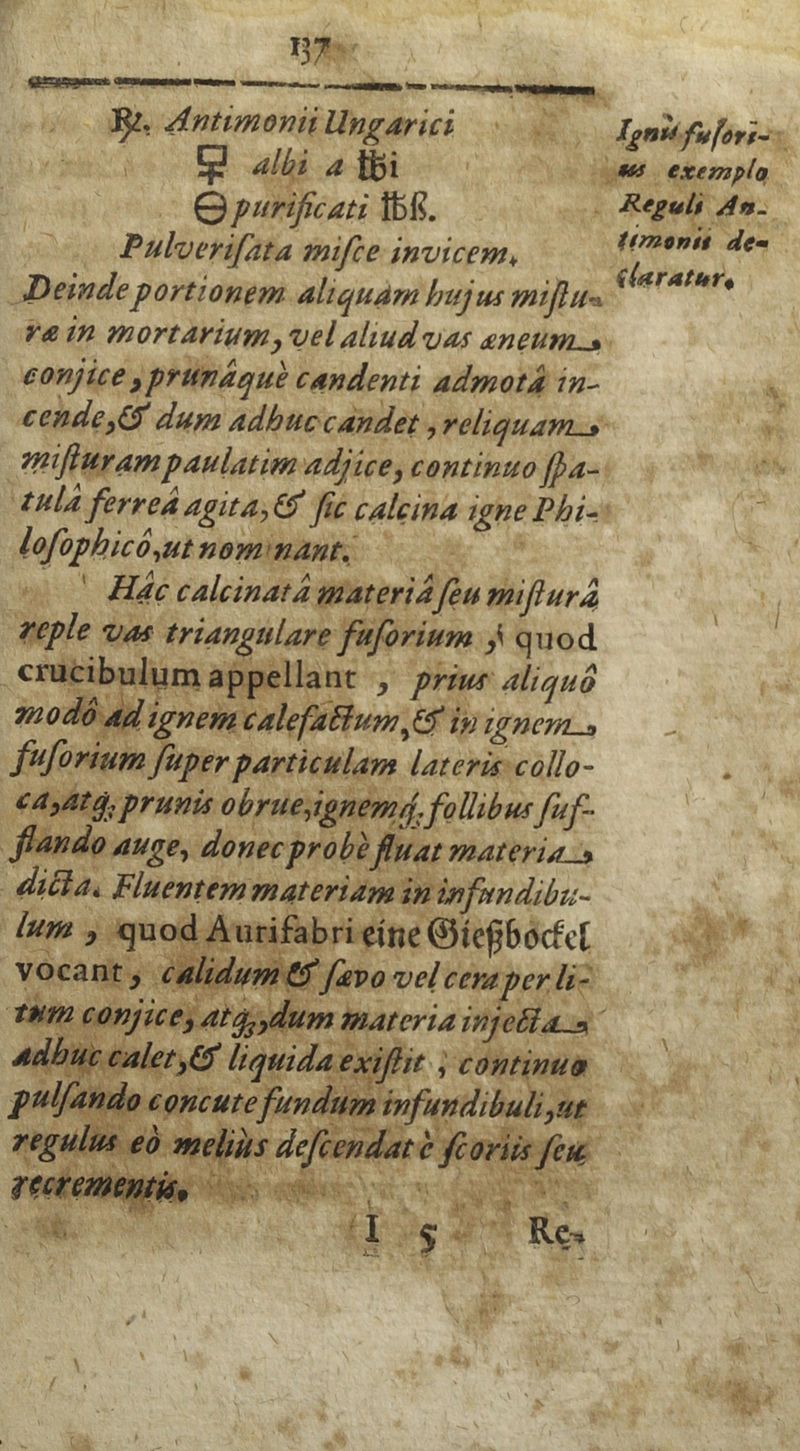 137
℞. Antimonii Ungarici
🜿 albi a ℔i
🜔 purificati ℔ß.
Pulveriſata miſce invicem.
Deinde portionem aliquam hujus miſtu-
ræ in mortarium, vel aliud vas æneum
conjice, prunâquè candenti admotâ in-
cende, & dum adhuc candet, reliquam
miſturam paulatim adjice, continuo ſpa-
tulâ ferreâ agita, & ſic calcina igne Phi-
loſophicô, ut nominant.
Hâc calcinatâ materiâ ſeu miſturâ
reple vas triangulare fuſorium, quod
crucibulum appellant, prius aliquô
modô ad ignem calefactum, & in ignem
fuſorium ſuper particulam lateris collo-
ca, atq; prunis obrue, ignemq́; follibus ſuf-
flando auge, donec probè fluat materia
dicta. Fluentem materiam in infundibu-
lum, quod Aurifabri eine Gießbockel
vocant, calidum & ſævo vel cera perli-
tum conjice, atq;, dum materia injecta
adhuc calet, & liquida exiſtit, continuo
pulſando concute fundum infundibuli, ut
regulus eò meliùs deſcendat è ſcoriis ſeu
recrementis.
I 5 Re-
Ignis fuſori-
us exemplo
Reguli An-
timonii de-
claratur.